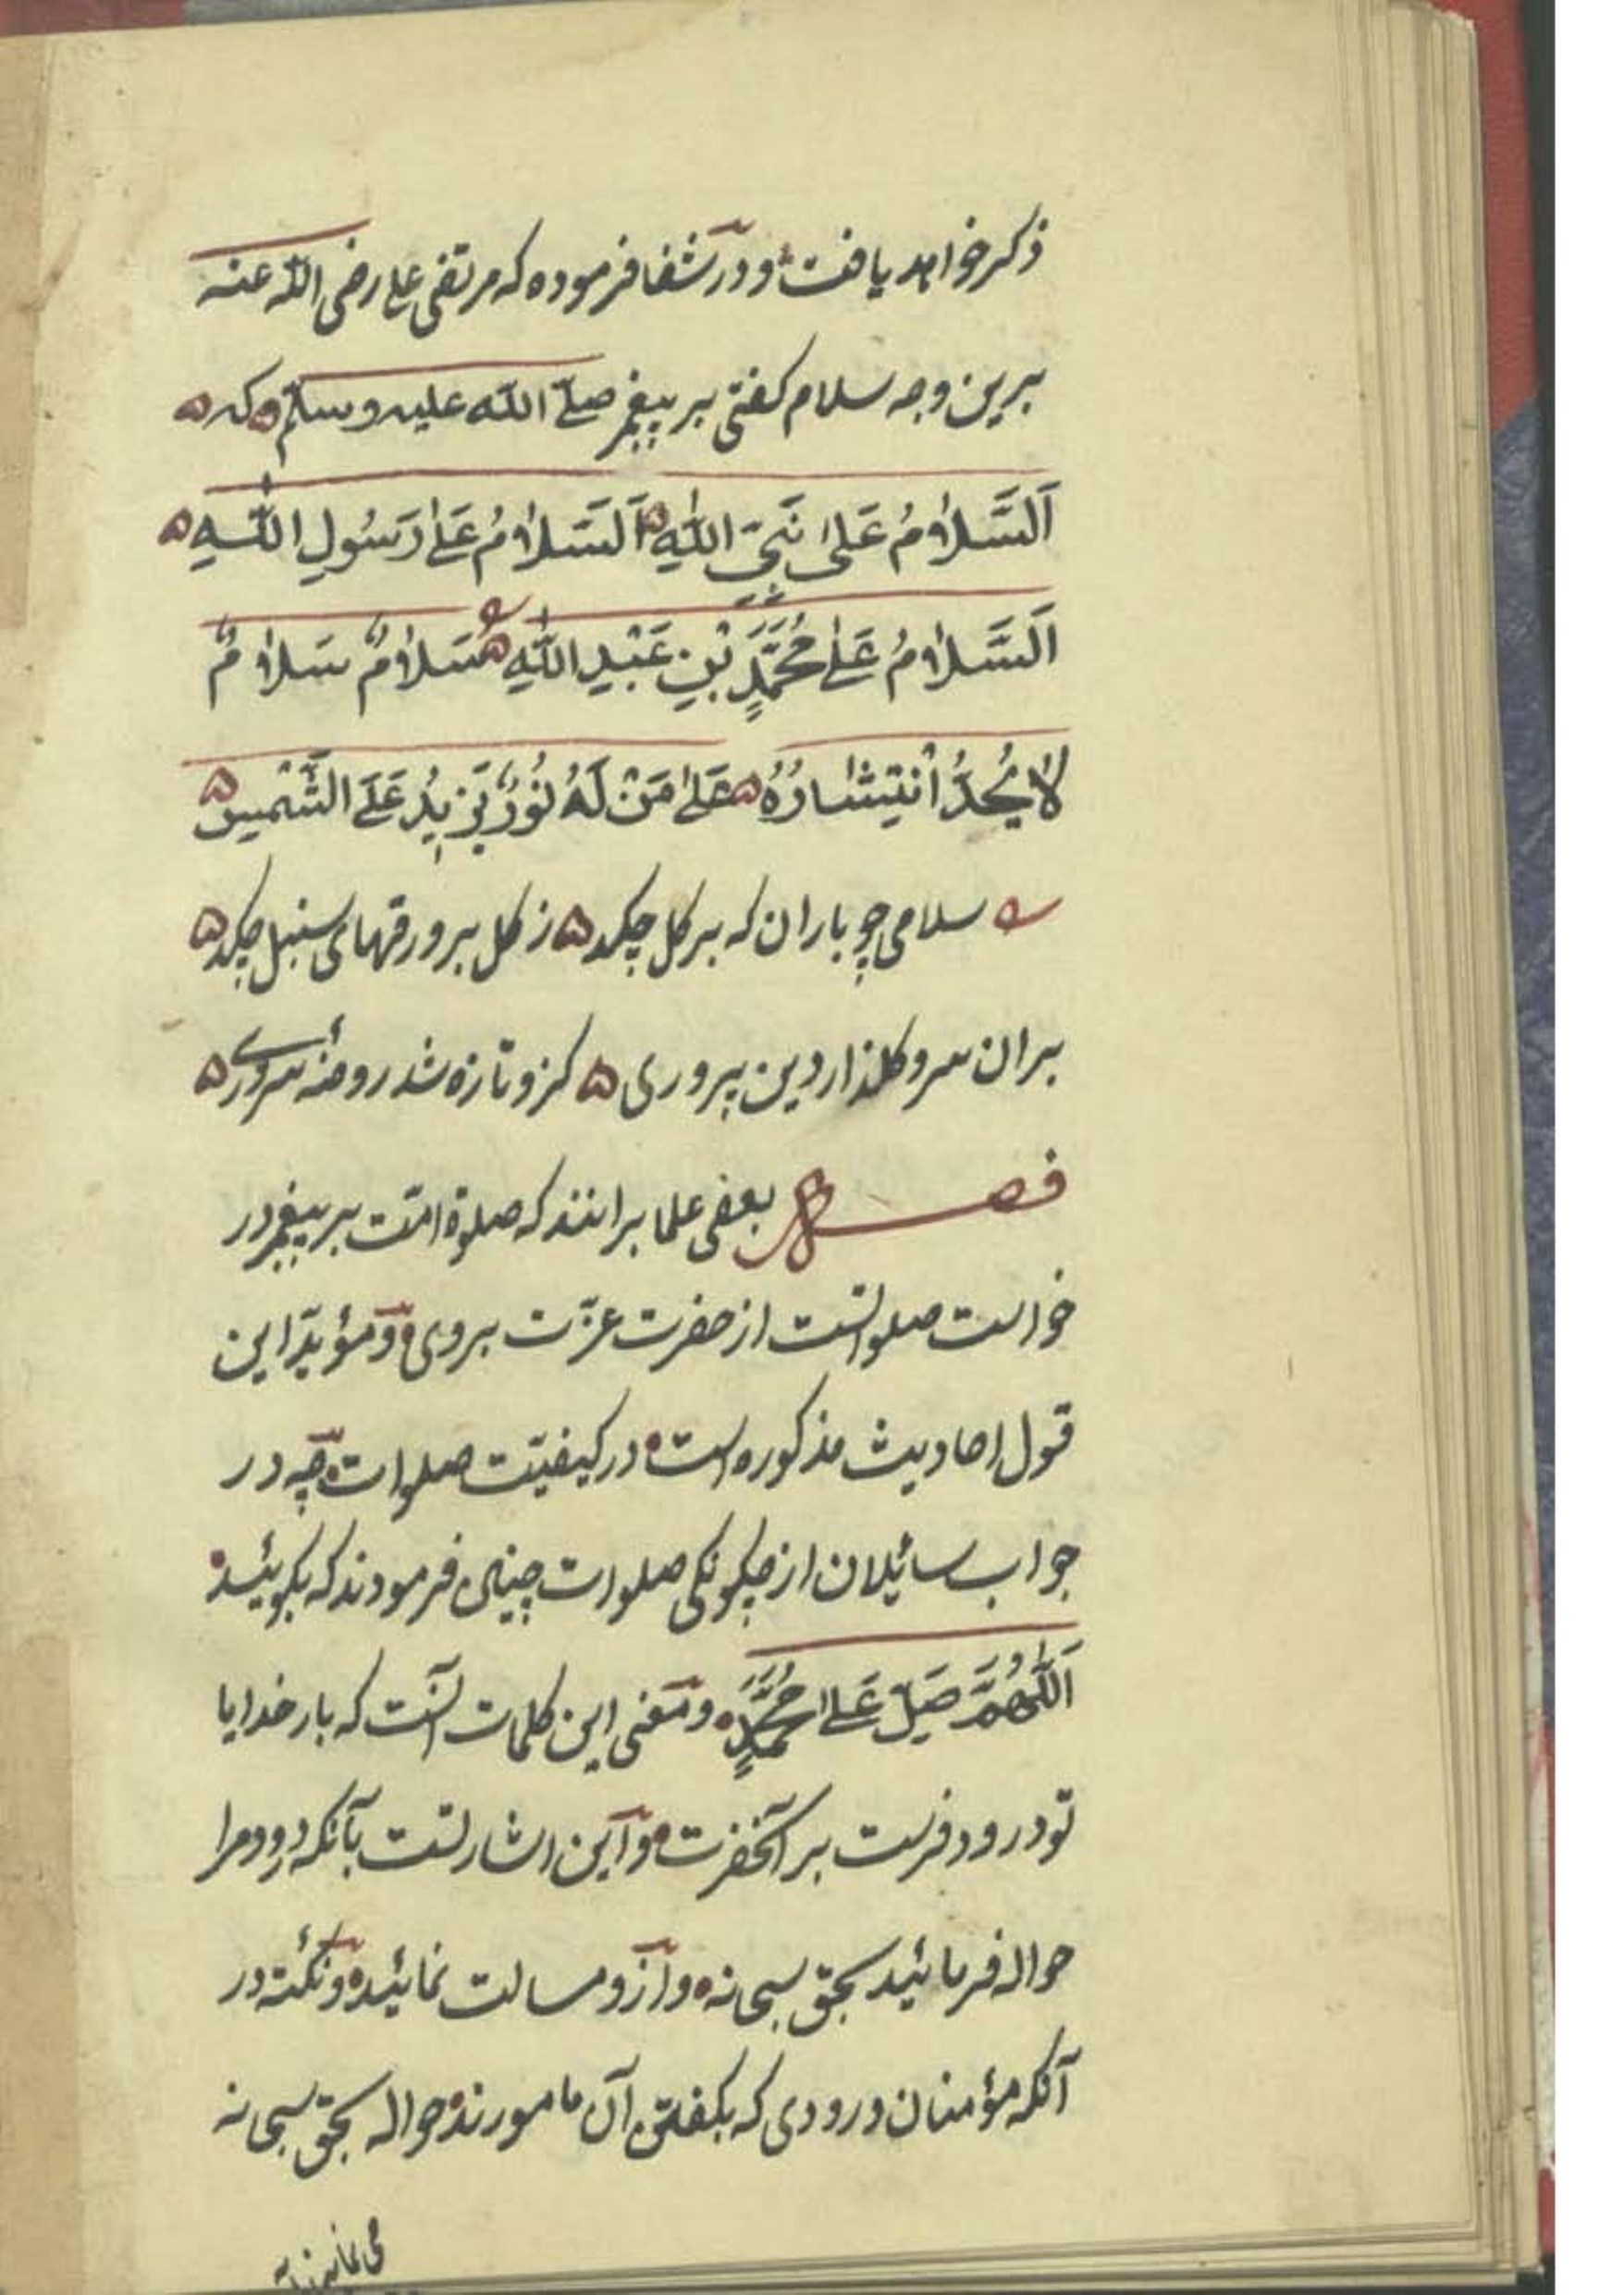 ذكر خواهد يافت و در شفا فرموده كه مرتضى على رضى الله عنه
برين وجه سلام كفتى بر پيغمبر صلّى الله عليه وسلّم كه
اَلسَّلَامُ عَلَى نَبِيِّ اللهِ اَلسَّلَامُ عَلَى رَسُولِ اللهِ
اَلسَّلَامُ عَلَى مُحَمَّدٍ بْنِ عَبْدِ اللهِ سَلَامٌ سَلَامٌ
لَا يُحَدُّ انْتِشَارُهُ عَلَى مَنْ لَهُ نُورٌ يَزِيدُ عَلَى الشَّمْسِ
سلامى چو باران كه بر كل چكد ز كل بر ورقهاى سنبل چكد
بران سرو كلذار دين پرورى كزو تازه شد روضهٔ سرورى
فصل بعضى علما برانند كه صلوة امّت بر پيغمبر در
خواست صلواتست از حضرت عزّت بر وى و مؤيّد اين
قول احاديث مذكوره است در كيفيّت صلوات چه در
جواب سائلان از چكونكى صلوات چنين فرمودند كه بكوئيد
اَللّٰهُمَّ صَلِّ عَلَى مُحَمَّدٍ و معنى اين كلمات آنست كه بار خدايا
تو درود فرست بر آنحضرت و اين اشارتست بآنكه درود مرا
حواله فرمائيد بحق سبحانه و ازو مسالت نمائيد و نكتهٔ در
آنكه مؤمنان درودى كه بكفتن آن مامورند حواله بحق سبحانه
مى نمايند